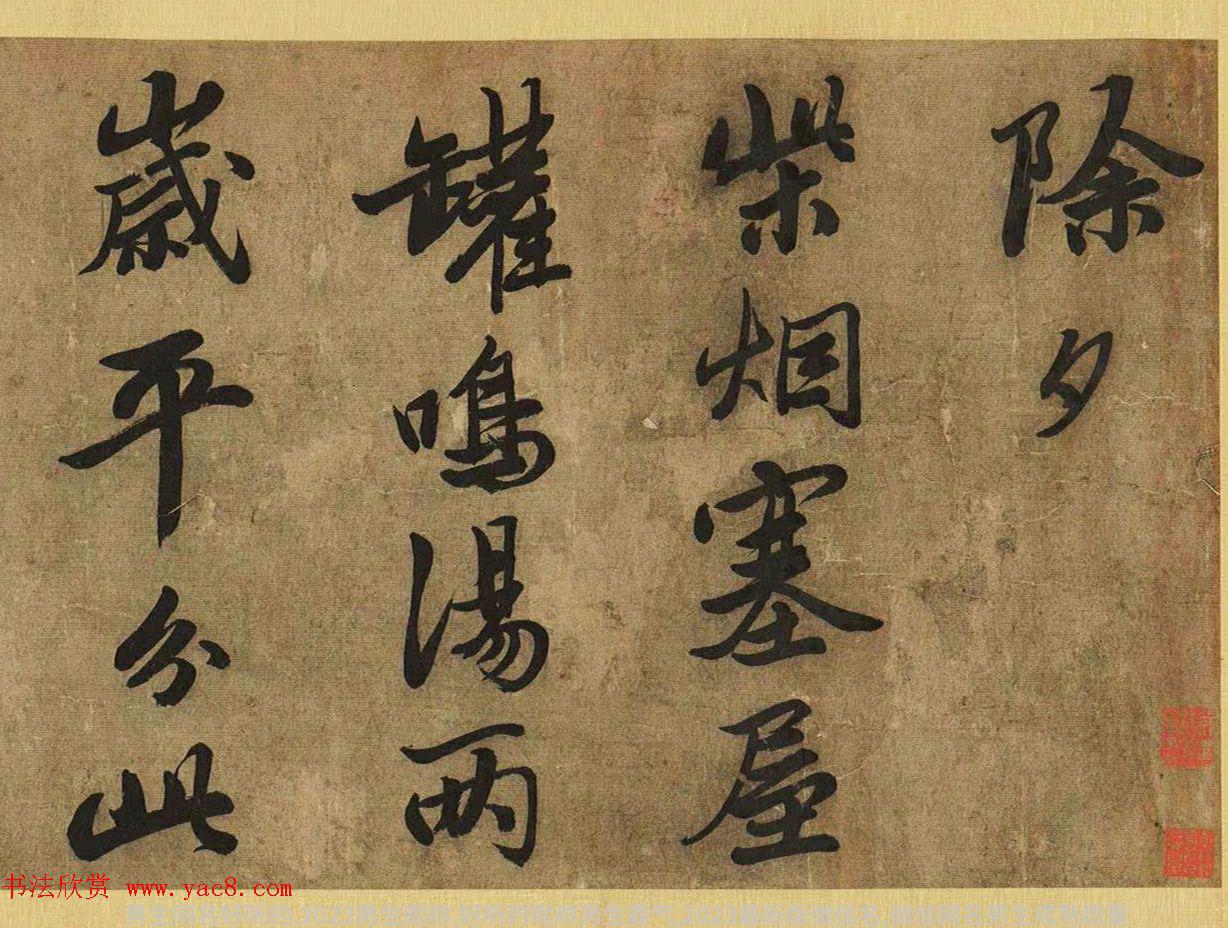 除夕
柴烟塞屋
罐鳴湯兩
歲平分此
书法欣赏 www.yac8.com